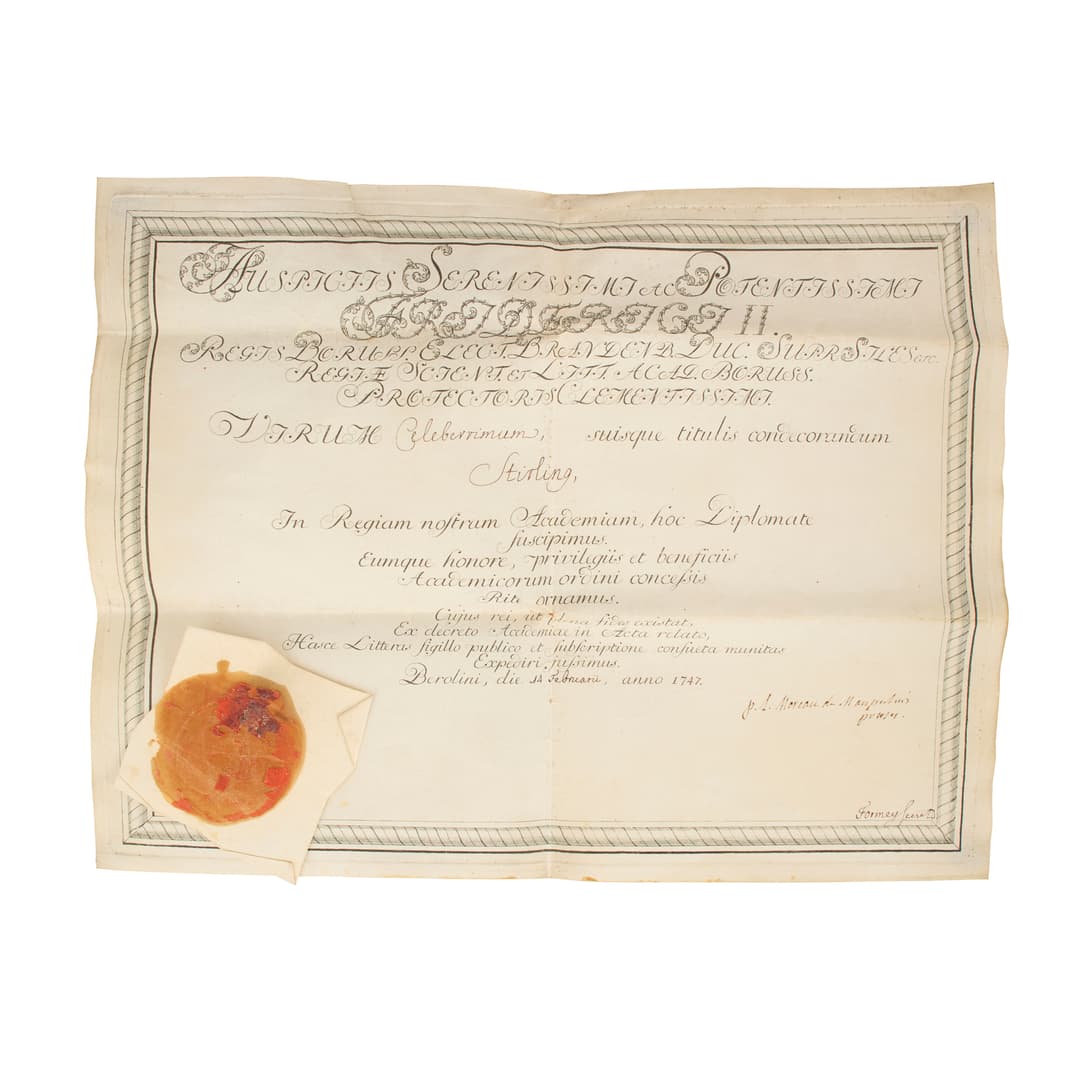 AUSPICIIS SERENISSIMI AC POTENTISSIMI
FRIDERICI II.
REGIS BORUSS. ELECT. BRANDENB. DUC. SUPR SILES etc.
REGIÆ SCIENT. ET LITT. ACAD. BORUSS.
PROTECTORIS CLEMENTISSIMI.
VIRUM Celeberrimum, suisque titulis condecorandum
Stirling,
In Regiam nostram Academiam, hoc Diplomate
suscipimus.
Eumque honore, privilegiis et beneficiis
Academicorum ordini conceſsis
Rite ornamus.
Cujus rei, ut plena fides existat,
Ex decreto Academiae in Acta relato,
Hasce Litteras ſigillo publico et ſubſcriptione conſueta munitas
Expediri juſsimus.
Berolini, die 14 Februarii, anno 1747.
p. L. Moreau de Maupertuis
præses.
Formey Secret